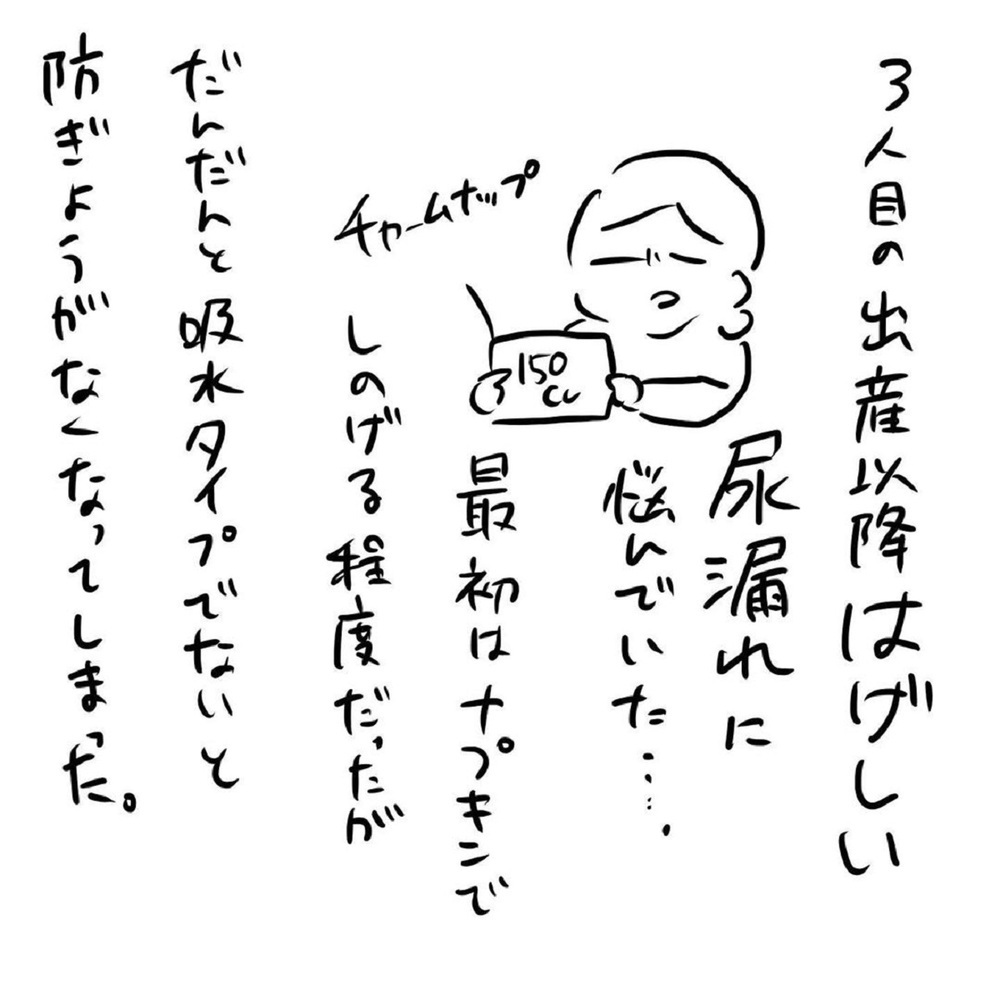 3人目の出産以降はげしい
尿漏れに
悩んでいた…….
最初はナプキンで
しのげる程度だったが
だんだんと吸水タイプでないと
防ぎようがなくなってしまった。
チャームナップ
150
cc